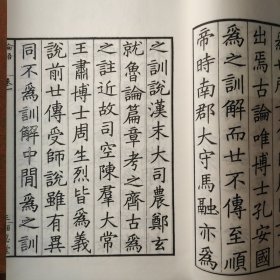 出焉古論唯博士孔安國
爲之訓解而世不傳至順
帝時南郡大守馬融亦爲
之訓說漢末大司農鄭玄
就魯論篇章考之齊古爲
之註近故司空陳羣大常
王肅博士周生烈皆爲義
說前世傳受師說雖有異
同不爲訓解中閒爲之訓
論語 卷一